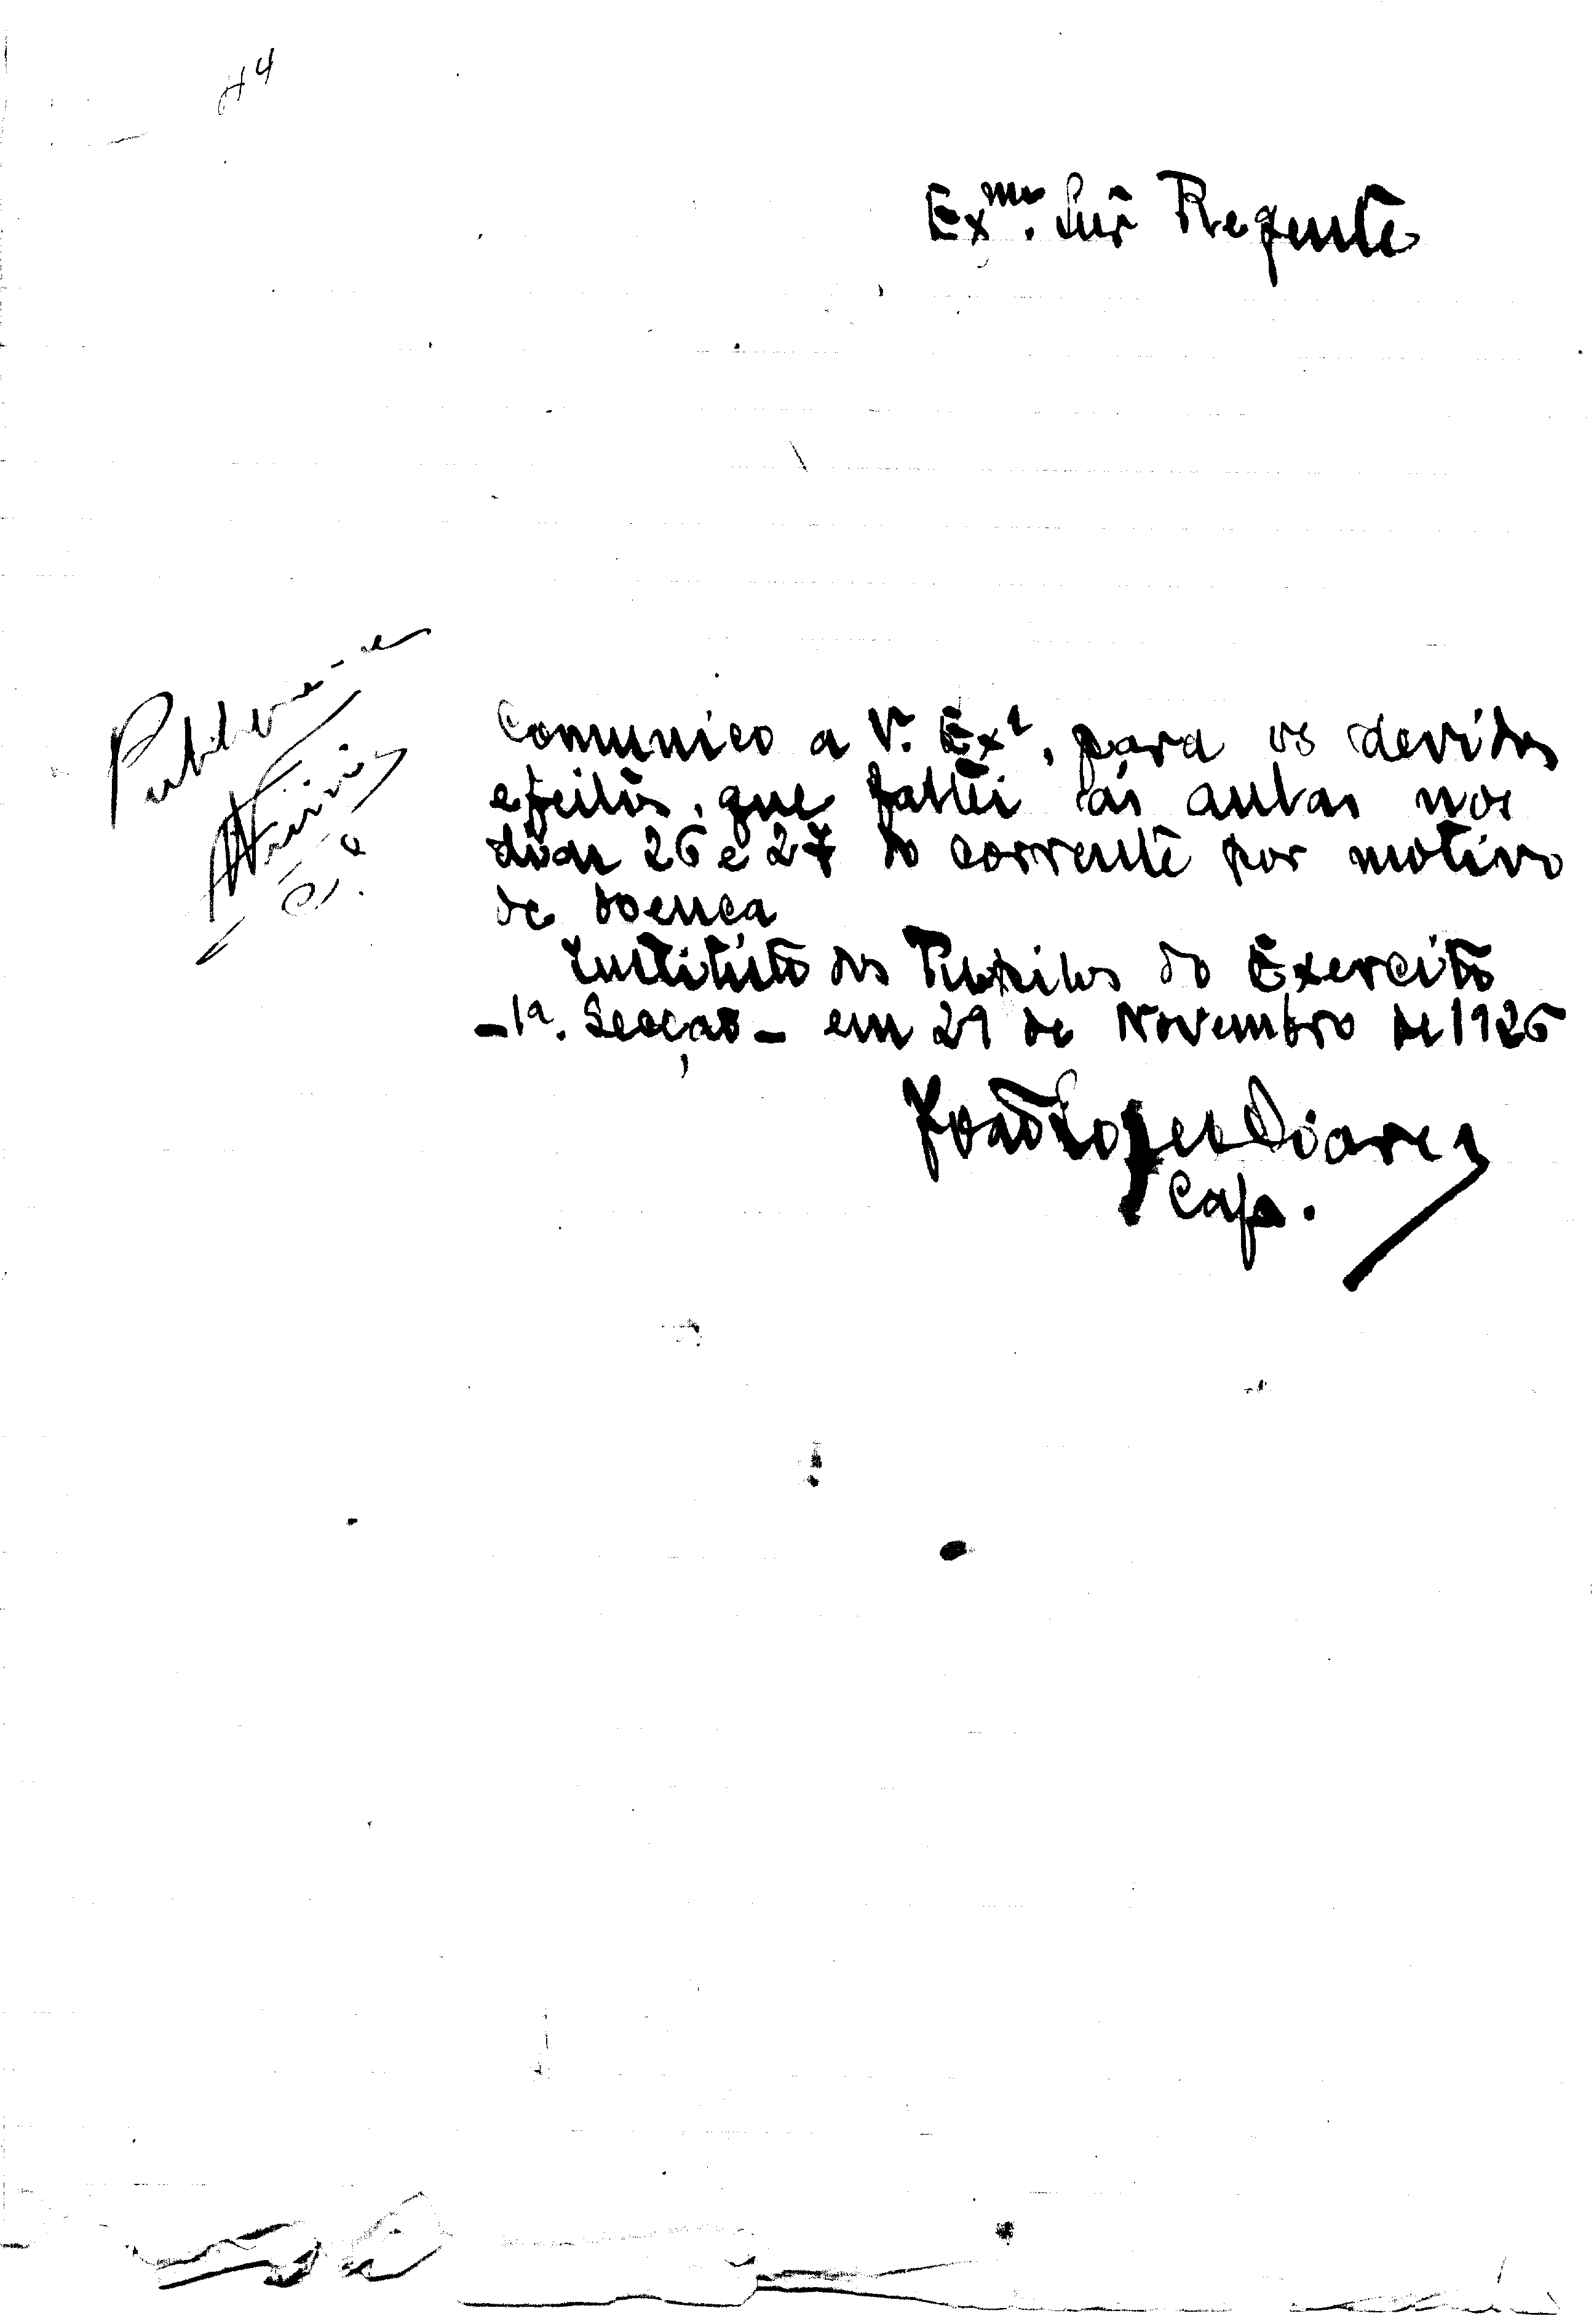 44
Exmo. Snr Regente
Publique-se
Comunico a V. Exª, para os devidos
efeitos, que faltei ás aulas nos
dias 26 e 27 do corrente por motivo
de doença
Instituto dos Pupilos do Exercito
- 1ª. Secção - em 29 de Novembro de 1926
João Lopes Soares
Cap.